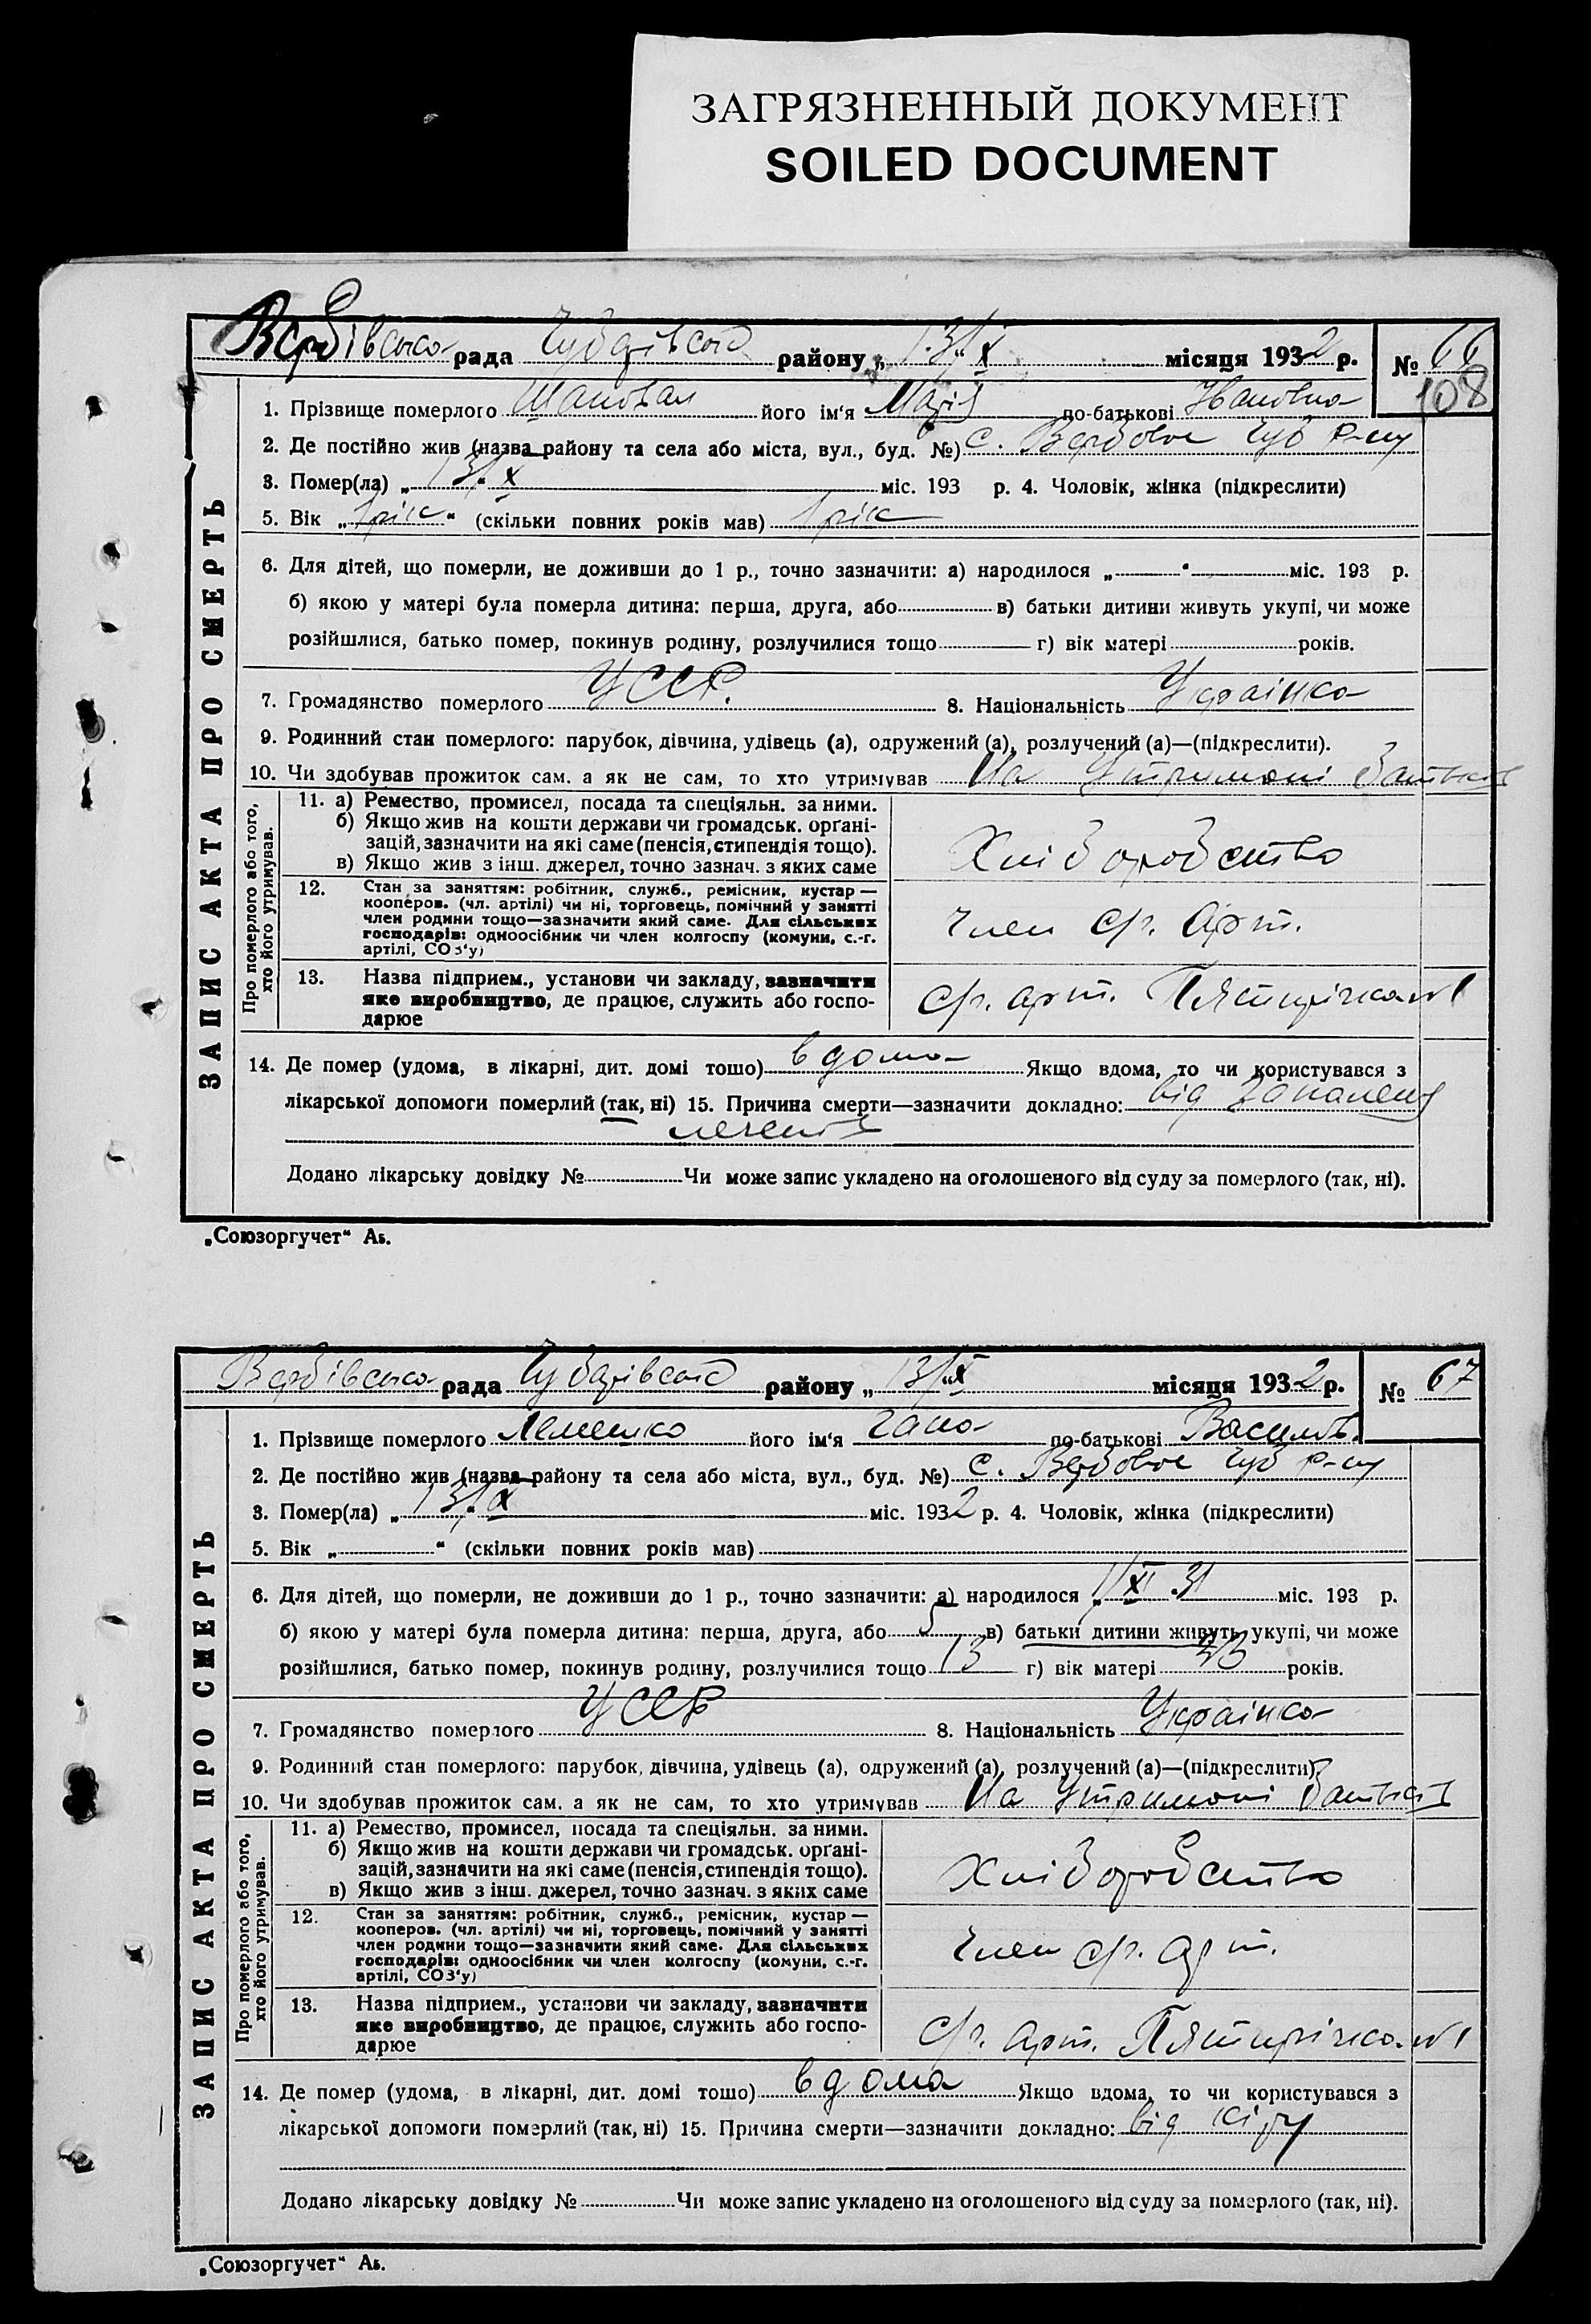 ЗАГРЯЗНЕННЫЙ ДОКУМЕНТ
SOILED DOCUMENT
Вербівська рада Чубарівського району „13/X місяця 1932 р. № 66
108
1. Прізвище померлого Шаповал його ім'я Марія по-батькові Івановна
2. Де постійно жив (назва району та села або міста, вул., буд. №) с. Вербове Чуб р-ну
3. Помер(ла) „13/“ X міс. 193 р. 4. Чоловік, жінка (підкреслити)
5. Вік „1 рік“ (скільки повних років мав) 1 рік
6. Для дітей, що померли, не доживши до 1 р., точно зазначити: а) народилося „ “ міс. 193 р.
б) якою у матері була померла дитина: перша, друга, або в) батьки дитини живуть укупі, чи може
розійшлися, батько помер, покинув родину, розлучилися тощо г) вік матері років.
7. Громадянство померлого УССР. 8. Національність Українка
9. Родинний стан померлого: парубок, дівчина, удівець (а), одружений (а), розлучений (а)—(підкреслити).
10. Чи здобував прожиток сам, а як не сам, то хто утримував На Утримані батьків
ЗАПИС АКТА ПРО СМЕРТЬ
Про померлого або того,
хто його утримував.
11. а) Ремество, промисел, посада та спеціяльн. за ними.
б) Якщо жив на кошти держави чи громадськ. орґані-
зацій, зазначити на які саме (пенсія, стипендія тощо).
в) Якщо жив з інш. джерел, точно зазнач. з яких саме
Хліборобство
12. Стан за заняттям: робітник, служб., ремісник, кустар—
кооперов. (чл. артілі) чи ні, торговець, помічний у занятті
член родини тощо—зазначити який саме. Для сільських
господарів: одноосібник чи член колгоспу (комуни, с.-г.
артілі, СОЗ'у)
член с/г. арт.
13. Назва підприєм., установи чи закладу, зазначити
яке виробництво, де працює, служить або госпо-
дарює
с/г. арт. Пятирічка №1
14. Де помер (удома, в лікарні, дит. домі тощо) вдома Якщо вдома, то чи користувався з
лікарської допомоги померлий (так, ні) 15. Причина смерти—зазначити докладно: від запаленя
легенів
Додано лікарську довідку № Чи може запис укладено на оголошеного від суду за померлого (так, ні).
„Союзоргучет“ Аь.
Вербівська рада Чубарівського району „13/“X місяця 1932 р. № 67
1. Прізвище померлого Лемешко його ім'я Гана по-батькові Василів.
2. Де постійно жив (назва району та села або міста, вул., буд. №) с. Вербове Чуб р-ну
3. Помер(ла) „13/“ X міс. 1932 р. 4. Чоловік, жінка (підкреслити)
5. Вік „ “ (скільки повних років мав)
6. Для дітей, що померли, не доживши до 1 р., точно зазначити: а) народилося „1/XI 31 міс. 193 р.
б) якою у матері була померла дитина: перша, друга, або 5 в) батьки дитини живуть укупі, чи може
розійшлися, батько помер, покинув родину, розлучилися тощо 13 г) вік матері 33 років.
7. Громадянство померлого УССР 8. Національність Українка
9. Родинний стан померлого: парубок, дівчина, удівець (а), одружений (а), розлучений (а)—(підкреслити).
10. Чи здобував прожиток сам, а як не сам, то хто утримував На Утримані батьків
ЗАПИС АКТА ПРО СМЕРТЬ
Про померлого або того,
хто його утримував.
11. а) Ремество, промисел, посада та спеціяльн. за ними.
б) Якщо жив на кошти держави чи громадськ. орґані-
зацій, зазначити на які саме (пенсія, стипендія тощо).
в) Якщо жив з інш. джерел, точно зазнач. з яких саме
Хліборобство
12. Стан за заняттям: робітник, служб., ремісник, кустар—
кооперов. (чл. артілі) чи ні, торговець, помічний у занятті
член родини тощо—зазначити який саме. Для сільських
господарів: одноосібник чи член колгоспу (комуни, с.-г.
артілі, СОЗ'у)
Член с/г. арт.
13. Назва підприєм., установи чи закладу, зазначити
яке виробництво, де працює, служить або госпо-
дарює
с/г. арт. Пятирічка №1
14. Де помер (удома, в лікарні, дит. домі тощо) вдома Якщо вдома, то чи користувався з
лікарської допомоги померлий (так, ні) 15. Причина смерти—зазначити докладно: від кіру
Додано лікарську довідку № Чи може запис укладено на оголошеного від суду за померлого (так, ні).
„Союзоргучет“ Аь.